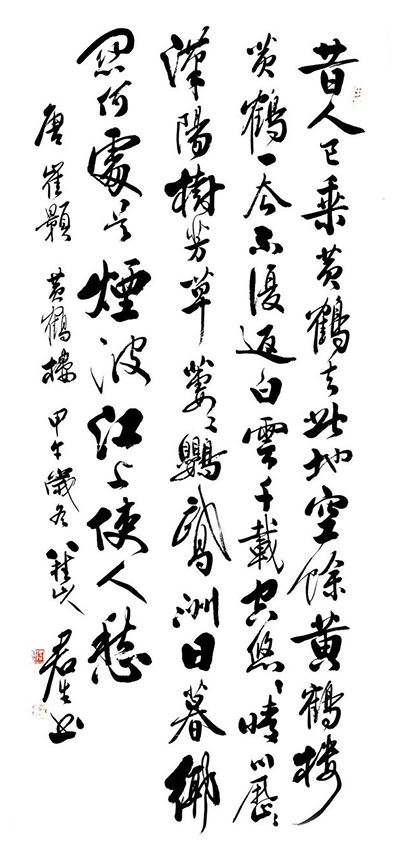 昔人已乘黄鶴去此地空餘黄鶴楼
黄鶴一去不復返白雲千載空悠々晴川歷々
漢陽樹芳草萋々鸚鵡洲日暮鄉
関何處是煙波江上使人愁
唐崔顥 黄鶴楼 甲午歲冬 君生书